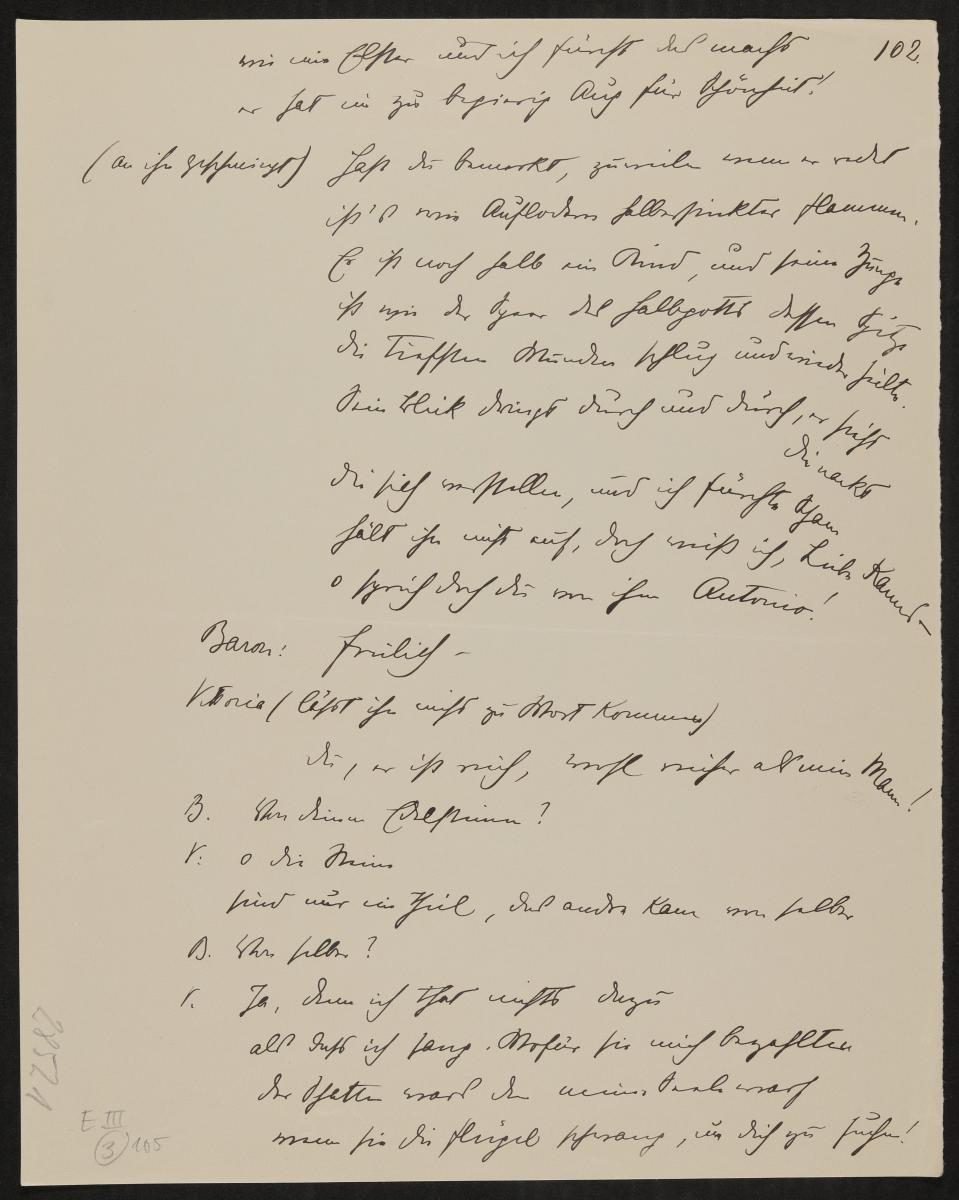 102.
wie eine Elster und ich fürcht das macht
er hat ein zu begierig Aug für Schönheit!
(an ihn geschmiegt) Hast du bemerkt, zuweilen wenn er redet
ist's wie Auflodern halberstickter Flammen.
Er ist noch halb ein Kind, und seine Zunge
ist wie der Speer des Halbgotts dessen Spitze
die tiefsten Wunden schlug und wieder heilte.
Sein Blick dringt durch und durch, er sieht
die nackt
die sich verstellen, und ich fürchte Scham
hält ihn nicht auf, doch weiß ich, Liebe kann's –
o sprich doch du von ihm Antonio!
Baron: freilich –
Vittoria (läßt ihn nicht zu Wort kommen)
Du, er ist reich, wohl reicher als mein Mann!
B. Von deinen Edelsteinen?
V: o die Steine
sind nur ein Theil, das andre kam von selber
B. Von selber?
V. Ja, denn ich that nichts dazu
als daß ich sang. Wofür sie mich bezahlten
der Schatten war's den meine Seele warf
wenn sie die Flügel schwang, um dich zu suchen!
E III
(3) 105